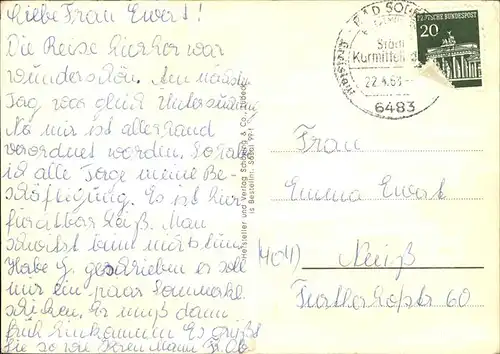 Liebe Frau Ewert!
Die Reise hierher war
wunderschön. Am nächsten
Tag war gleich Untersuchung
Na mir ist allerhand
verordnet worden. So habe
ist alle Tage meine Be-
schäftigung. Es ist hier
furchtbar heiß. Man
schwitzt beim nichts tun.
Habe G. geschrieben er soll
mir ein paar Sommerkl.
schicken. Er muß dann
früh hinkommen Es grüßt
Sie so wie Ihren Mann Fr.
Hersteller und Verlag Schöning & Co., Lübeck
BAD SOD
Kurmittel
22.4.68
6483
DEUTSCHE BUNDESPOST
20
Frau
Emma Ewert
(4041) Neuß
Furtherhofstr 60